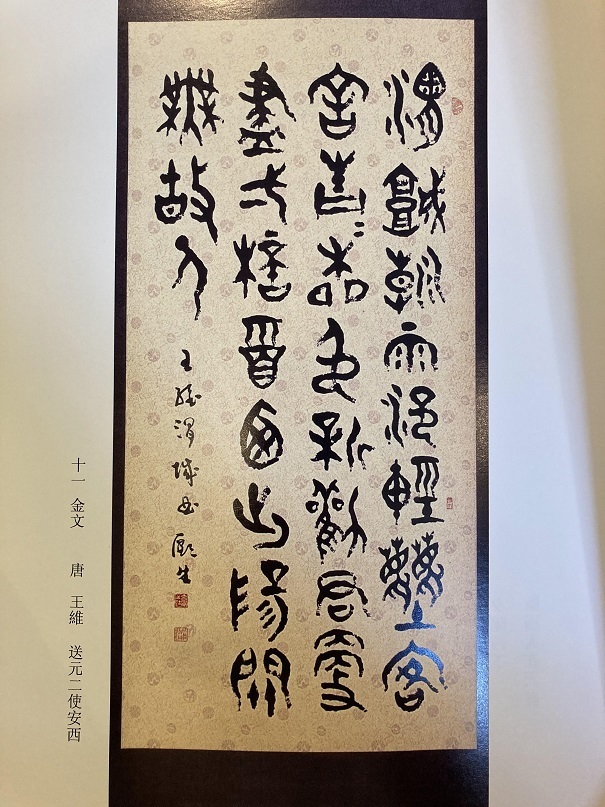 渭城朝雨浥輕塵客
舍青〻柳色新勸君更
盡一杯酒西出陽關
無故人
王維渭城曲
十一 金文 唐 王維 送元二使安西